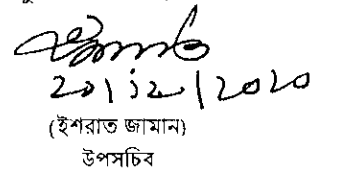 20/12/2020
(ইশরাত জামান)
উপসচিব